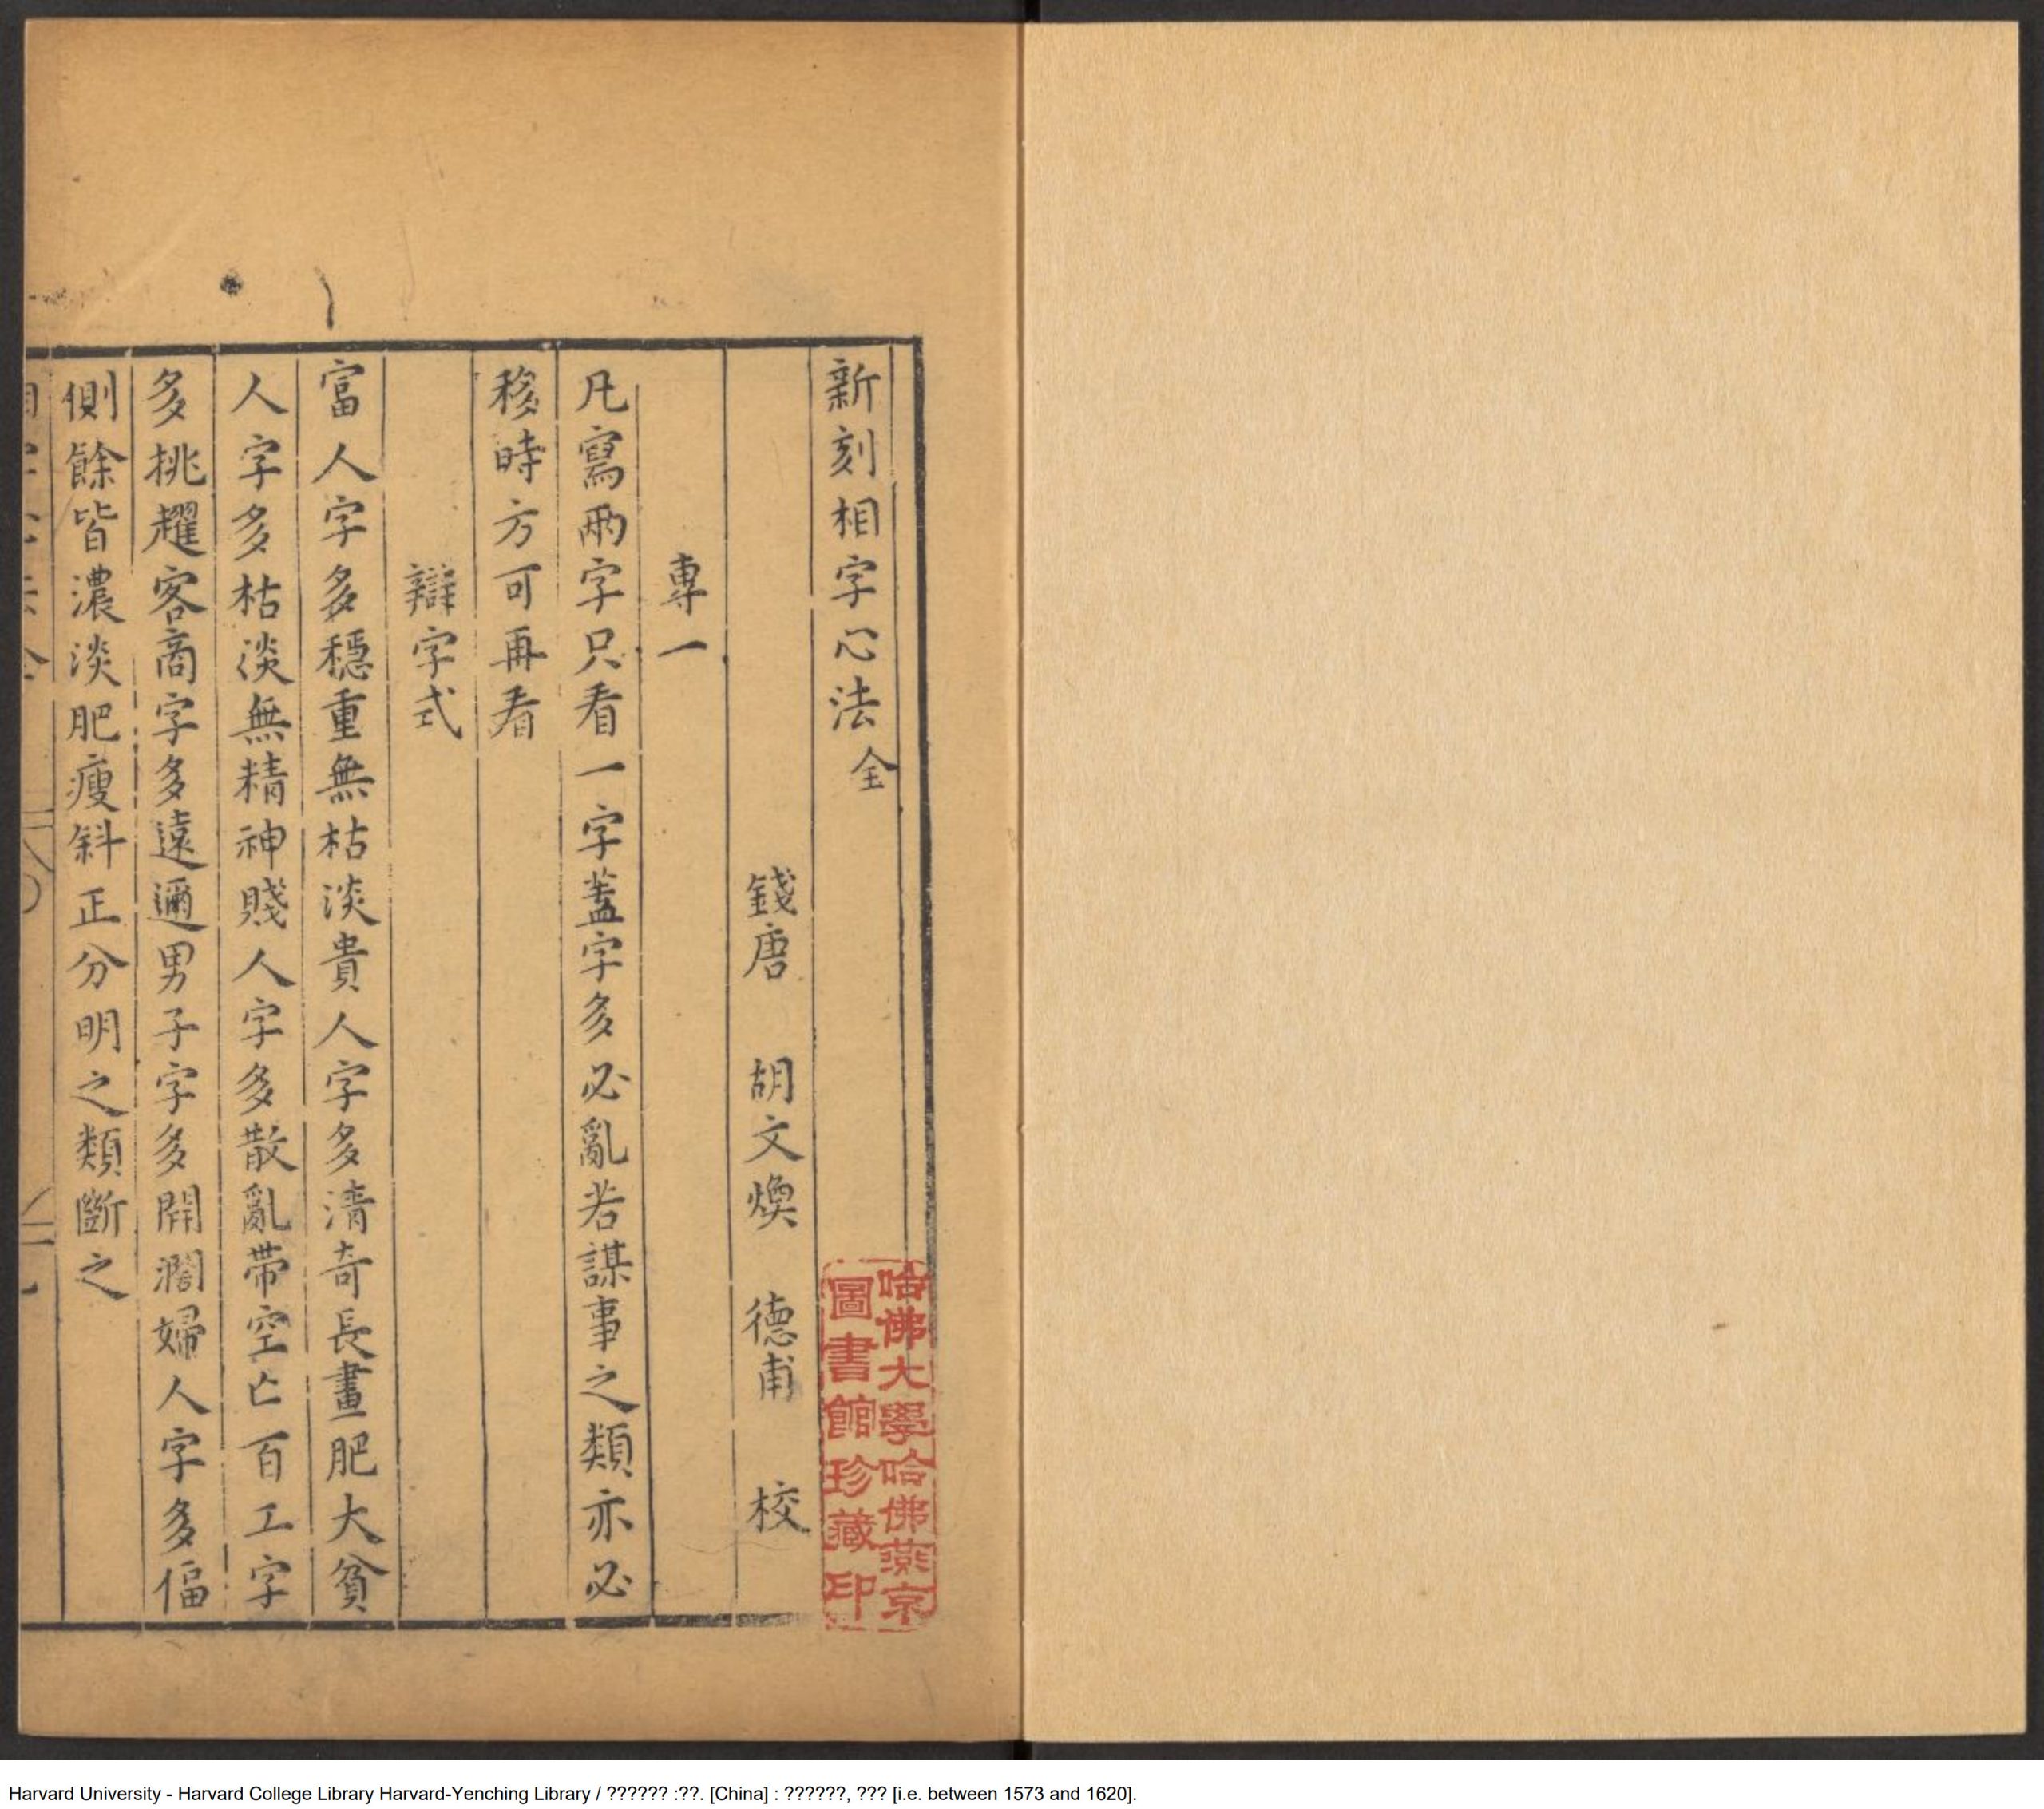 新刻相字心法全
錢唐 胡文煥 德甫 校
專一
凡寫兩字只看一字蓋字多必亂若謀事之類亦必
移時方可再看
辯字式
富人字多穩重無枯淡貴人字多清奇長畫肥大貧
人字多枯淡無精神賤人字多散亂帶空亡百工字
多挑趯客商字多遠邇男子字多開濶婦人字多偪
側餘皆濃淡肥瘦斜正分明之類斷之
哈佛大學哈佛燕京
圖書館珍藏印
Harvard University - Harvard College Library Harvard-Yenching Library / ?????? :??. [China] : ??????, ??? [i.e. between 1573 and 1620].